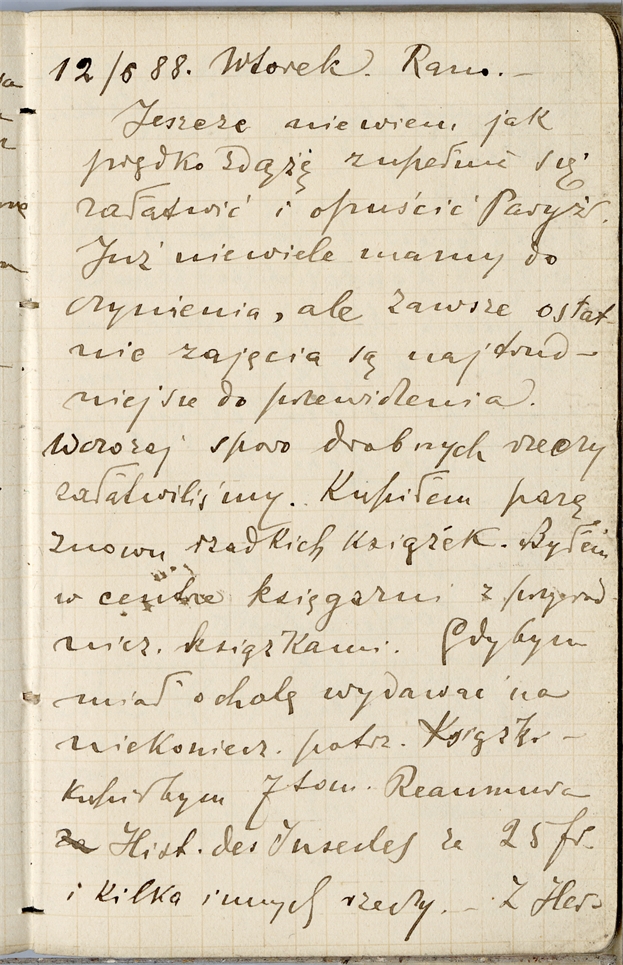 12/6 88. Wtorek. Rano. –
Jeszcze nie wiem, jak
prędko zdążę zupełnie się
załatwić i opuścić Paryż.
Już niewiele mamy do
czynienia, ale zawsze ostat-
nie zajęcia są najtrud-
niejsze do przewidzenia.
Wczoraj sporo drobnych rzeczy
załatwiliśmy. Kupiłem parę
znowu rzadkich książek. Byłem
w centre księgarni z przyrod-
nicz. książkami. Gdybym
miał ochotę wydawać na
niekoniecz. potrz. Książki –
kupiłbym 7 tom. Reaumura
Hist. des Insectes za 25 fr.
i kilka innych rzeczy. – Z Her-